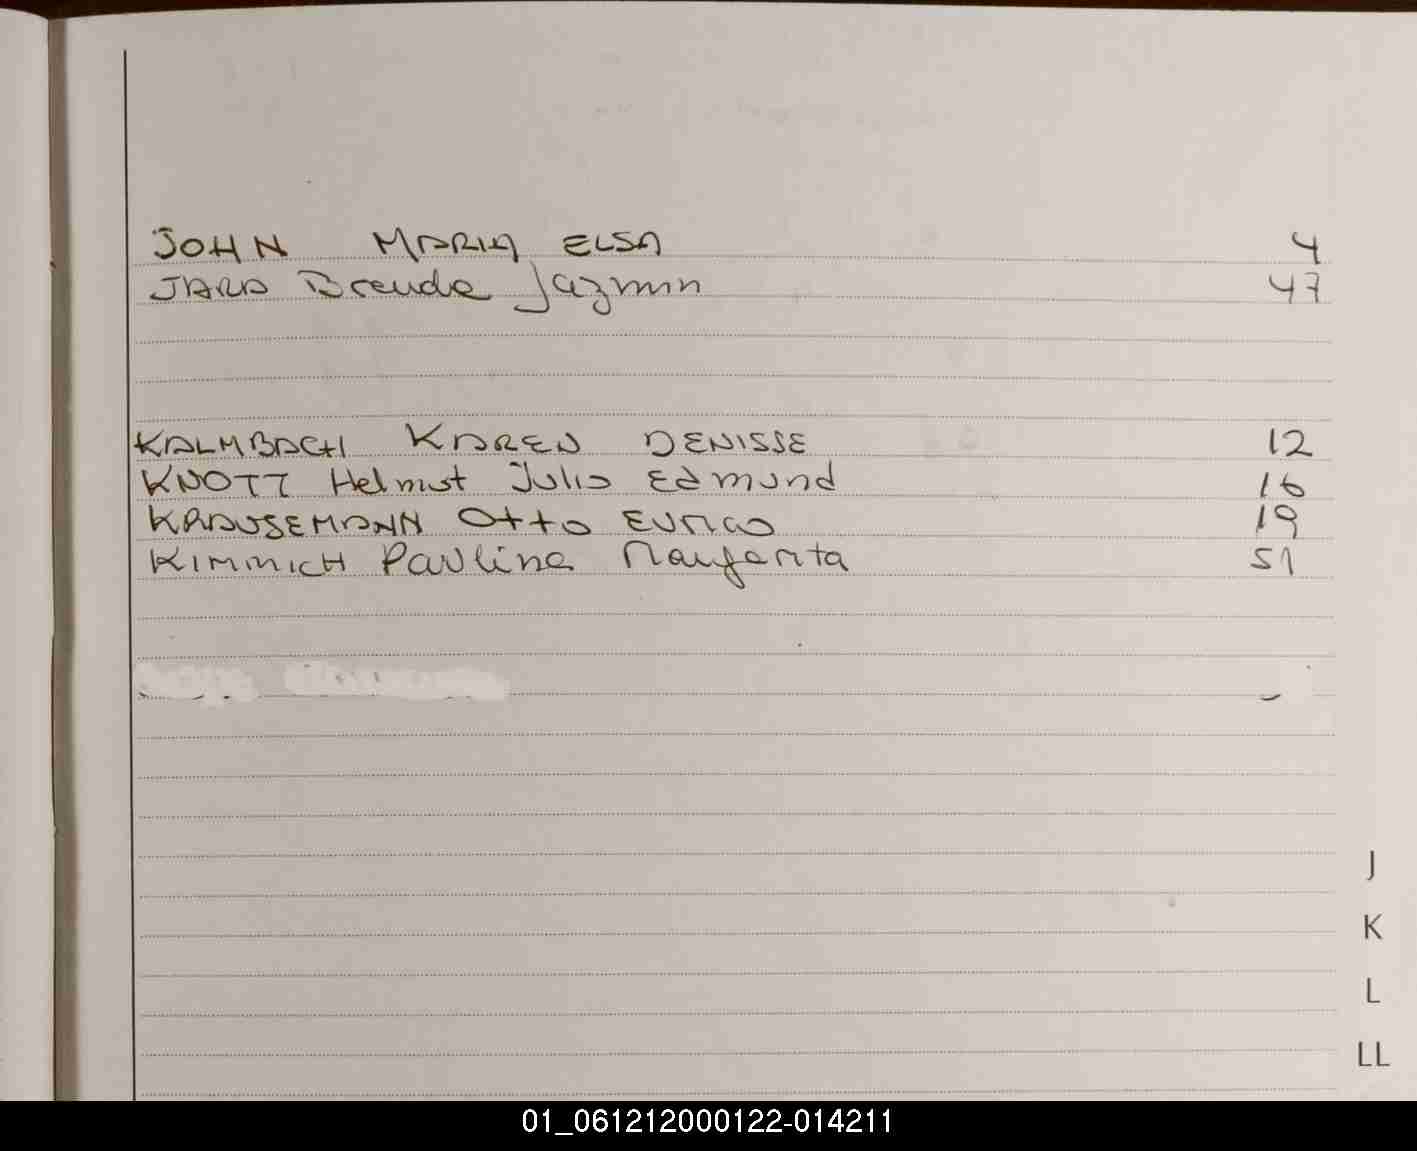 JOHN MARIA ELSA 4
JARA Brenda Jazmin 47
KALMBACH KAREN DENISSE 12
KNOTT Helmut Julio Edmund 16
KRAUSEMANN Otto EURICO 19
KIMMICH Paulina Margarita 51
J
K
L
LL
01_061212000122-014211